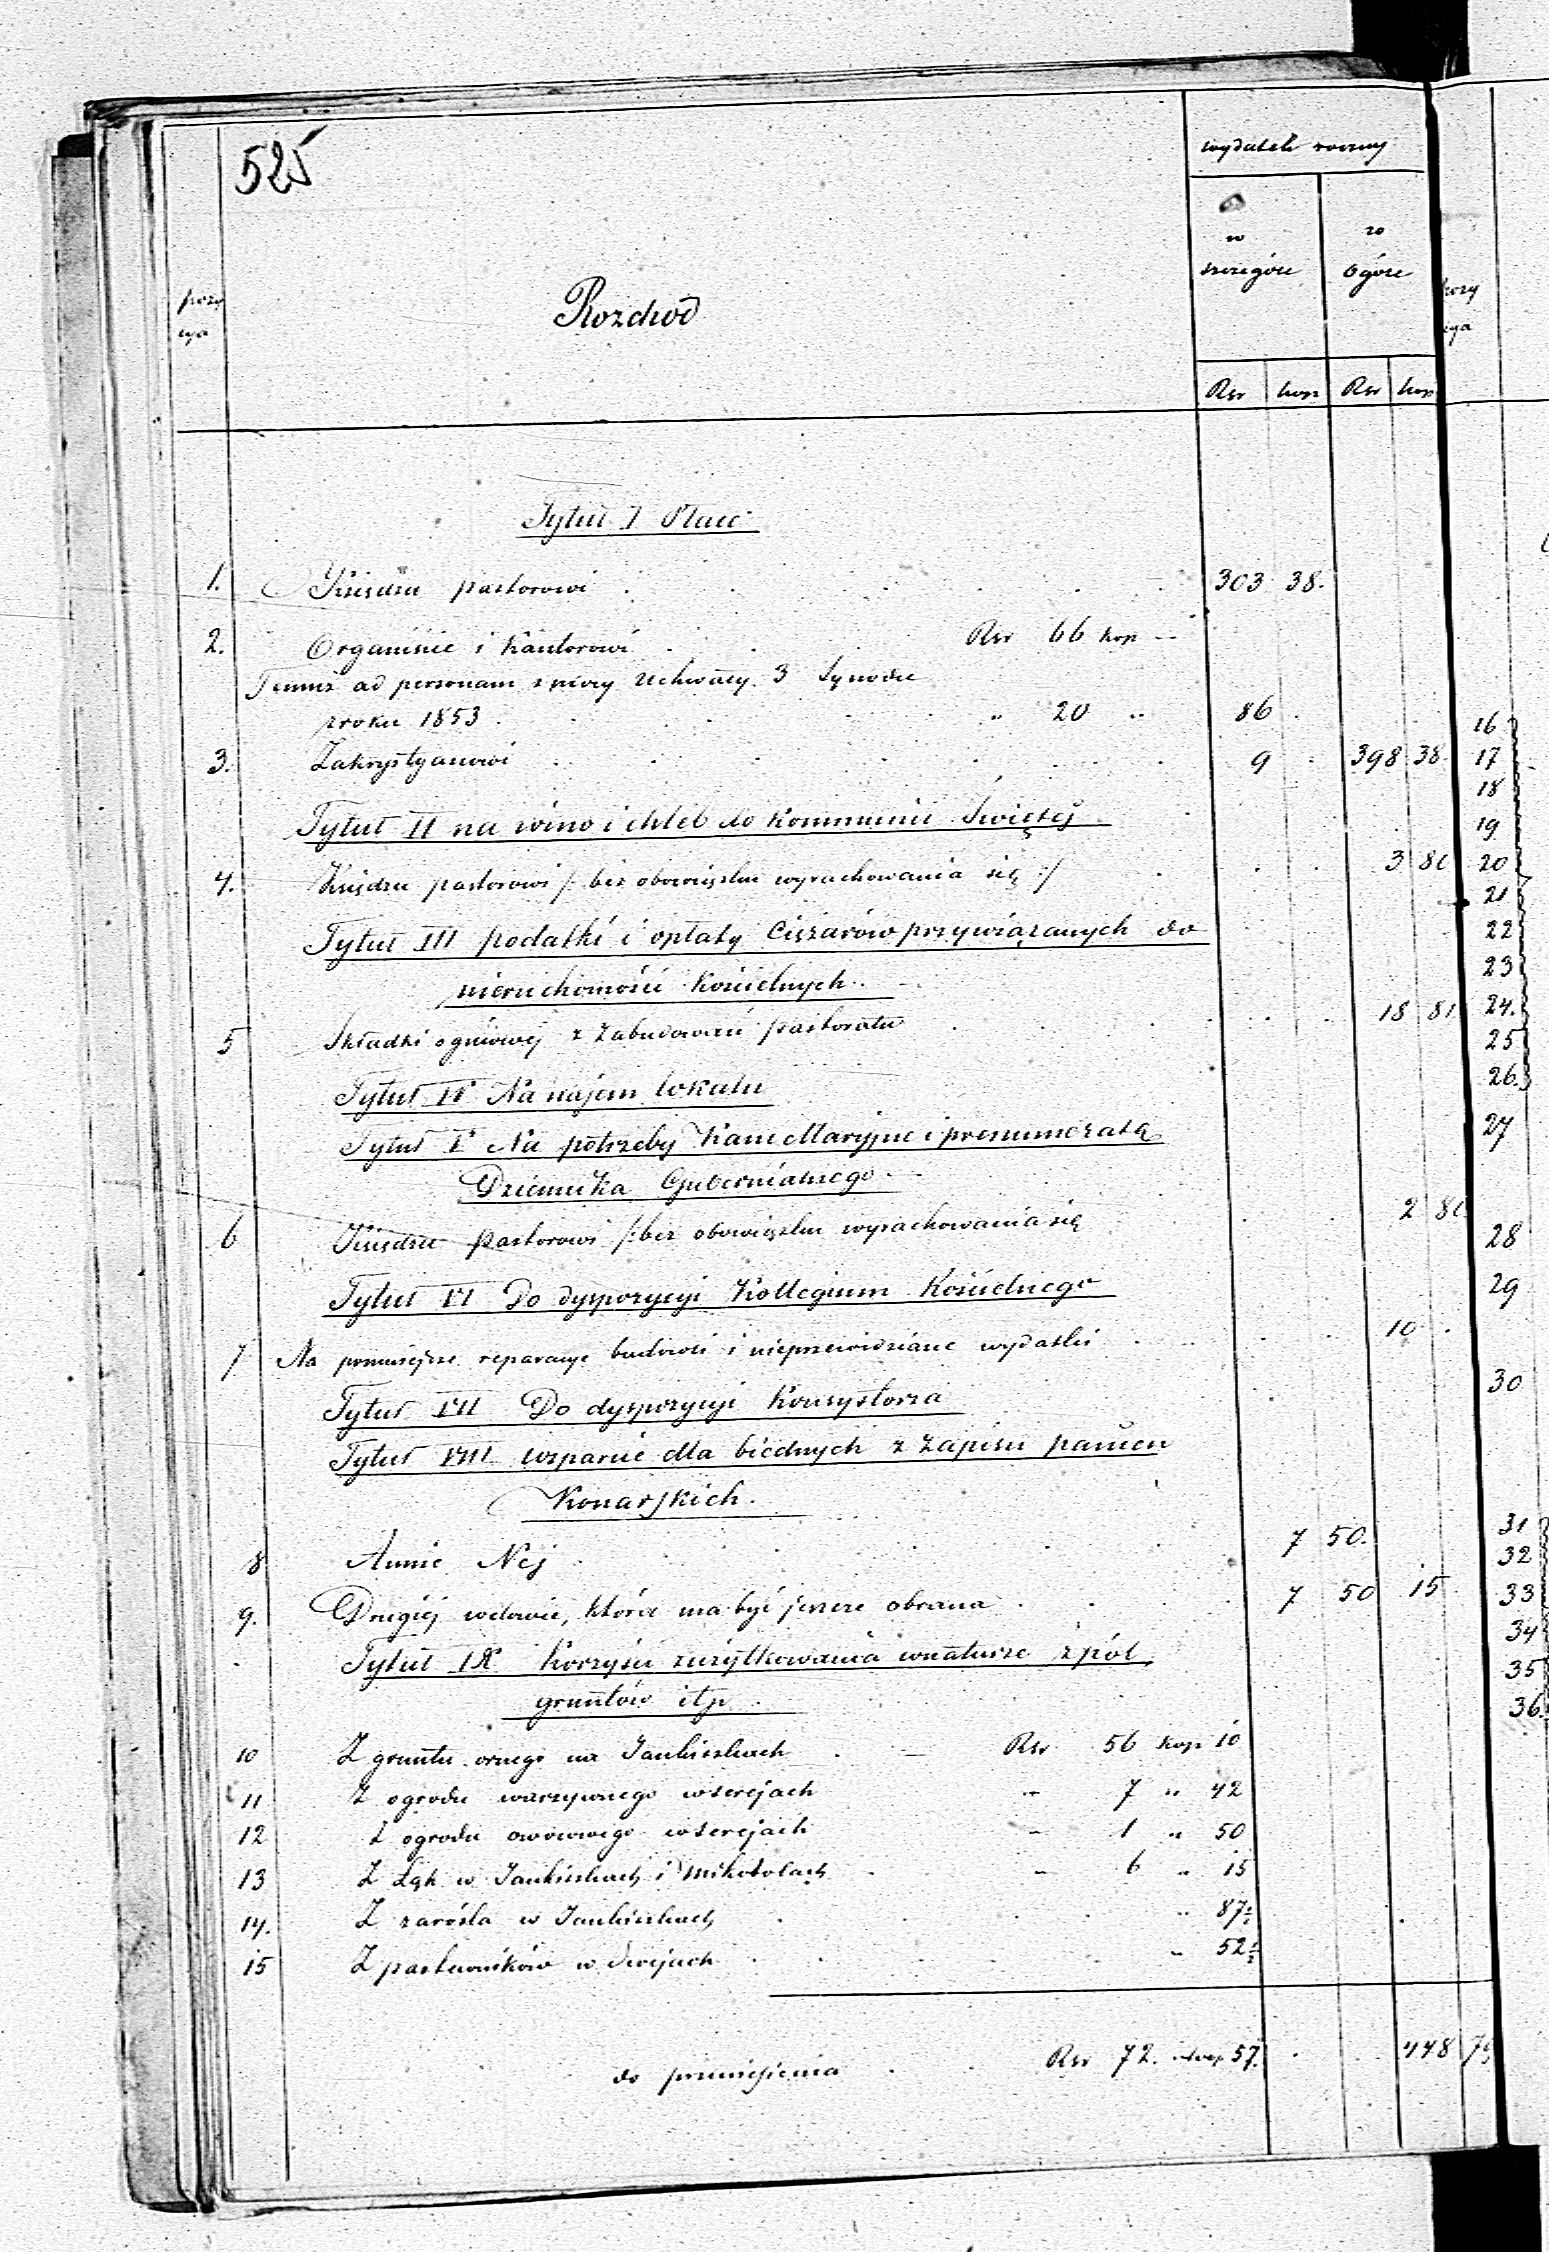 525
wydatek roczny
w szczególe
w ogóle
pozy cya
Rozchód
Rsr kop Rsr kop
Tytuł I Płace
1. Księdzu pastorowi 303 38.
2. Organiście i Kantorowi Rsr 66 kop „
Temuż ad personam z mocy Uchwały 3 Synodu
z roku 1853 „ 20 „ 86
3. Zakrystyanowi 9 398 38
Tytuł II na wino i chleb do Kommunii Świętej
4. Księdzu pastorowi /: bez obowiązku wyrachowania się :/ 3 80
Tytuł III podatki i opłaty Ciężarów przywiązanych do
nieruchomości Kościelnych
5 Składki ogniowej z Zabudowań pastoratu 18 81
Tytuł IV Na najem lokalu
Tytuł V Na potrzeby Kancellaryjne i prenumeratę
Dziennika Gubernialnego
6 Księdzu Pastorowi /: bez obowiązku wyrachowania się 2 80
Tytuł VI Do dyspozycyi Kollegium Kościelnego
7 Na pomniejsze reparacye budowli i nieprzewidziane wydatki 10
Tytuł VII Do dyspozycyi Konsystorza
Tytuł VIII wsparcie dla biednych z Zapisu panien
Konarskich.
8 Annie Nej 7 50.
9. Drugiej wdowie, która ma być jeszcze obrana 7 50 15
Tytuł IX Korzyści zużytkowania w naturze z pól
gruntów itp
10 Z gruntu ornego na Jankiszkach Rsr 56 kop 10
11 Z ogrodu warzywnego w Serejach „ 7 „ 42
12 Z ogrodu owocowego w Serejach „ 1 „ 50
13 Z Łąk w Jankiszkach i Mikołolach „ 6 „ 15
14. Z zarośla w Jankiszkach „ 87½
15 Z pastewników w Serejach „ 52½
do przeniesienia Rsr 72. kop 57. 448 79
pozy
cya
16
17
18
19
20
21
22
23
24.
25
26.
27
28
29
30
31
32
33
34
35
36.